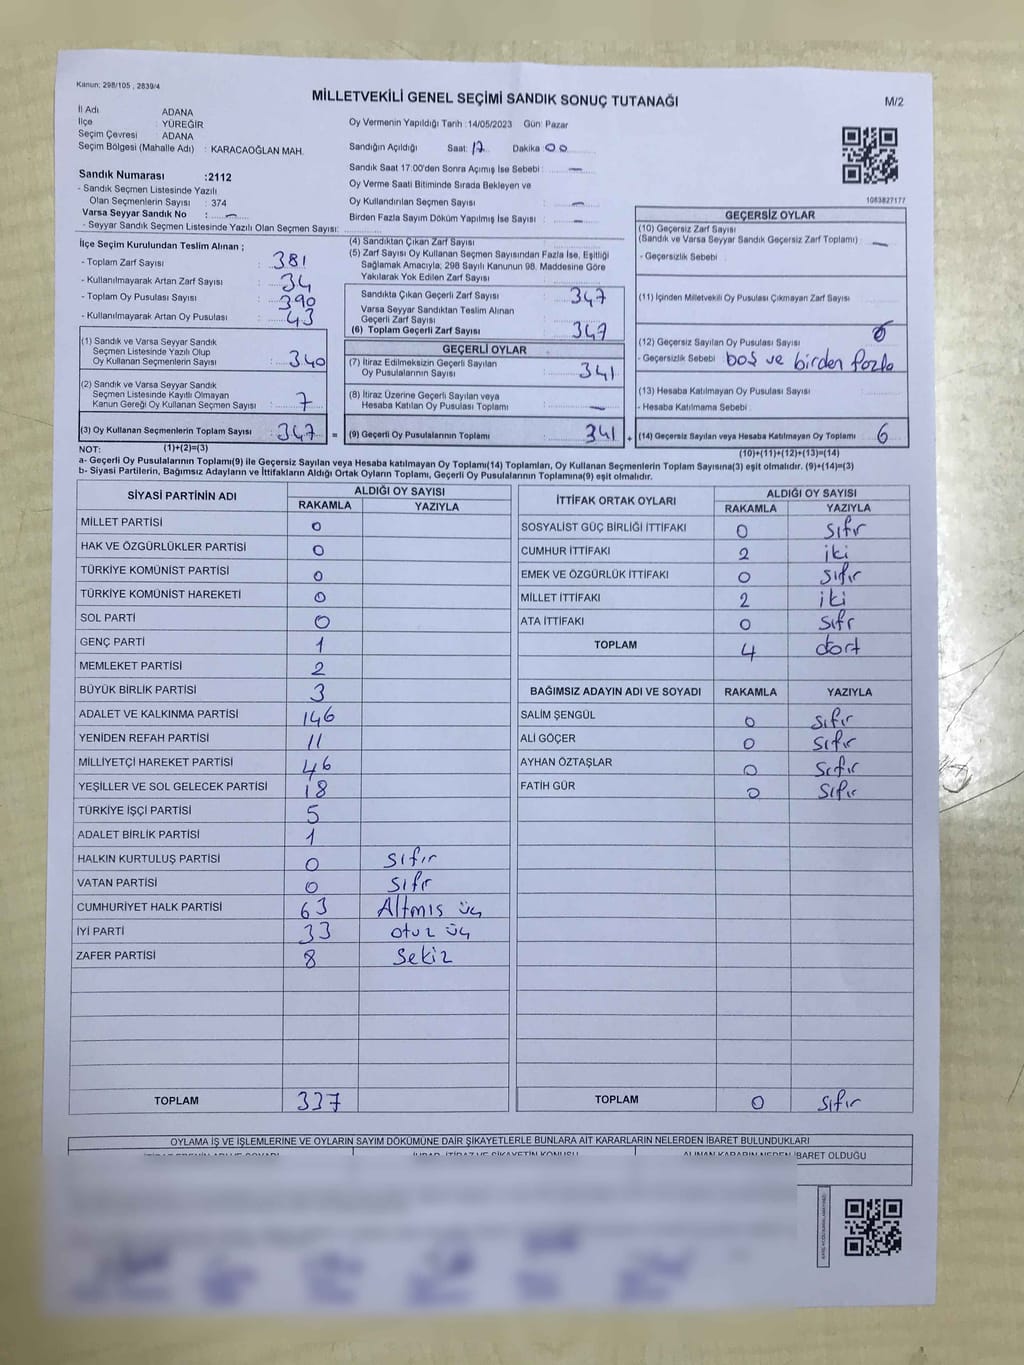 Kanun: 298/105 , 2839/4
MİLLETVEKİLİ GENEL SEÇİMİ SANDIK SONUÇ TUTANAĞI
M/2
İl Adı ADANA
İlçe : YÜREĞİR
Seçim Çevresi : ADANA
Seçim Bölgesi (Mahalle Adı) : KARACAOĞLAN MAH.
Oy Vermenin Yapıldığı Tarih :14/05/2023 Gün: Pazar
Sandığın Açıldığı Saat: 17 Dakika 00
Sandık Saat 17:00'den Sonra Açımış İse Sebebi : —
Oy Verme Saati Bitiminde Sırada Bekleyen ve
Oy Kullandırılan Seçmen Sayısı : —
Birden Fazla Sayım Döküm Yapılmış İse Sayısı : —
Sandık Numarası :2112
- Sandık Seçmen Listesinde Yazılı
Olan Seçmenlerin Sayısı : 374
Varsa Seyyar Sandık No : —
- Seyyar Sandık Seçmen Listesinde Yazılı Olan Seçmen Sayısı:
1083827177
İlçe Seçim Kurulundan Teslim Alınan ;
- Toplam Zarf Sayısı : 381
- Kullanılmayarak Artan Zarf Sayısı : 34
- Toplam Oy Pusulası Sayısı : 390
- Kullanılmayarak Artan Oy Pusulası : 43
(1) Sandık ve Varsa Seyyar Sandık
Seçmen Listesinde Yazılı Olup
Oy Kullanan Seçmenlerin Sayısı : 340
(2) Sandık ve Varsa Seyyar Sandık
Seçmen Listesinde Kayıtlı Olmayan
Kanun Gereği Oy Kullanan Seçmen Sayısı : 7
(3) Oy Kullanan Seçmenlerin Toplam Sayısı : 347 =
(4) Sandıktan Çıkan Zarf Sayısı :
(5) Zarf Sayısı Oy Kullanan Seçmen Sayısından Fazla İse, Eşitliği
Sağlamak Amacıyla; 298 Sayılı Kanunun 98. Maddesine Göre
Yakılarak Yok Edilen Zarf Sayısı :
Sandıkta Çıkan Geçerli Zarf Sayısı : 347
Varsa Seyyar Sandıktan Teslim Alınan
Geçerli Zarf Sayısı :
(6) Toplam Geçerli Zarf Sayısı : 347
GEÇERLİ OYLAR
(7) İtiraz Edilmeksizin Geçerli Sayılan
Oy Pusulalarının Sayısı : 341
(8) İtiraz Üzerine Geçerli Sayılan veya
Hesaba Katılan Oy Pusulası Toplamı : —
(9) Geçerli Oy Pusulalarının Toplamı : 341 +
GEÇERSİZ OYLAR
(10) Geçersiz Zarf Sayısı
(Sandık ve Varsa Seyyar Sandık Geçersiz Zarf Toplamı) —
- Geçersizlik Sebebi :
(11) İçinden Milletvekili Oy Pusulası Çıkmayan Zarf Sayısı
(12) Geçersiz Sayılan Oy Pusulası Sayısı : 6
- Geçersizlik Sebebi : boş ve birden fazla
(13) Hesaba Katılmayan Oy Pusulası Sayısı
- Hesaba Katılmama Sebebi :
(14) Geçersiz Sayılan veya Hesaba Katılmayan Oy Toplamı : 6
NOT: (1)+(2)=(3)
(10)+(11)+(12)+(13)=(14)
a- Geçerli Oy Pusulalarının Toplamı(9) ile Geçersiz Sayılan veya Hesaba katılmayan Oy Toplamı(14) Toplamları, Oy Kullanan Seçmenlerin Toplam Sayısına(3) eşit olmalıdır. (9)+(14)=(3)
b- Siyasi Partilerin, Bağımsız Adayların ve İttifakların Aldığı Oyların Toplamı, Geçerli Oy Pusulalarının Toplamına(9) eşit olmalıdır.
SİYASİ PARTİNİN ADI ALDIĞI OY SAYISI
RAKAMLA YAZIYLA
MİLLET PARTİSİ 0
HAK VE ÖZGÜRLÜKLER PARTİSİ 0
TÜRKİYE KOMÜNİST PARTİSİ 0
TÜRKİYE KOMÜNİST HAREKETİ 0
SOL PARTİ 0
GENÇ PARTİ 1
MEMLEKET PARTİSİ 2
BÜYÜK BİRLİK PARTİSİ 3
ADALET VE KALKINMA PARTİSİ 146
YENİDEN REFAH PARTİSİ 11
MİLLİYETÇİ HAREKET PARTİSİ 46
YEŞİLLER VE SOL GELECEK PARTİSİ 18
TÜRKİYE İŞÇİ PARTİSİ 5
ADALET BİRLİK PARTİSİ 1
HALKIN KURTULUŞ PARTİSİ 0 sıfır
VATAN PARTİSİ 0 sıfr
CUMHURİYET HALK PARTİSİ 63 Altmıs üç
İYİ PARTİ 33 otuz üç
ZAFER PARTİSİ 8 Sekiz
TOPLAM 337
İTTİFAK ORTAK OYLARI ALDIĞI OY SAYISI
RAKAMLA YAZIYLA
SOSYALİST GÜÇ BİRLİĞİ İTTİFAKI 0 sıfır
CUMHUR İTTİFAKI 2 iki
EMEK VE ÖZGÜRLÜK İTTİFAKI 0 sıfır
MİLLET İTTİFAKI 2 iki
ATA İTTİFAKI 0 sıfr
TOPLAM 4 dört
BAĞIMSIZ ADAYIN ADI VE SOYADI RAKAMLA YAZIYLA
SALİM ŞENGÜL 0 sıfır
ALİ GÖÇER 0 sıfır
AYHAN ÖZTAŞLAR 0 sıfır
FATİH GÜR 0 sıfır
TOPLAM 0 sıfır
OYLAMA İŞ VE İŞLEMLERİNE VE OYLARIN SAYIM DÖKÜMÜNE DAİR ŞİKAYETLERLE BUNLARA AİT KARARLARIN NELERDEN İBARET BULUNDUKLARI
İHBAR, İTİRAZ VE ŞİKAYETİN KONUSU ALINAN KARARIN NEDEN İBARET OLDUĞU